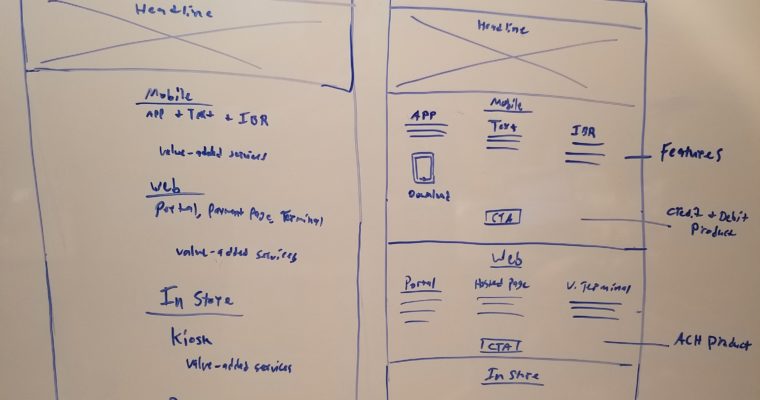 Headline
Mobile
APP + Text + IBR
value-added services
Web
Portal, Payment Page, Terminal
value-added services
In Store
Kiosk
value-added services
Headline
Mobile
APP
Text
IBR
Download
CTA
Features
Credit + Debit
Produce
Web
Portal
Hosted Page
V. Terminal
CTA
ACH Product
In Store